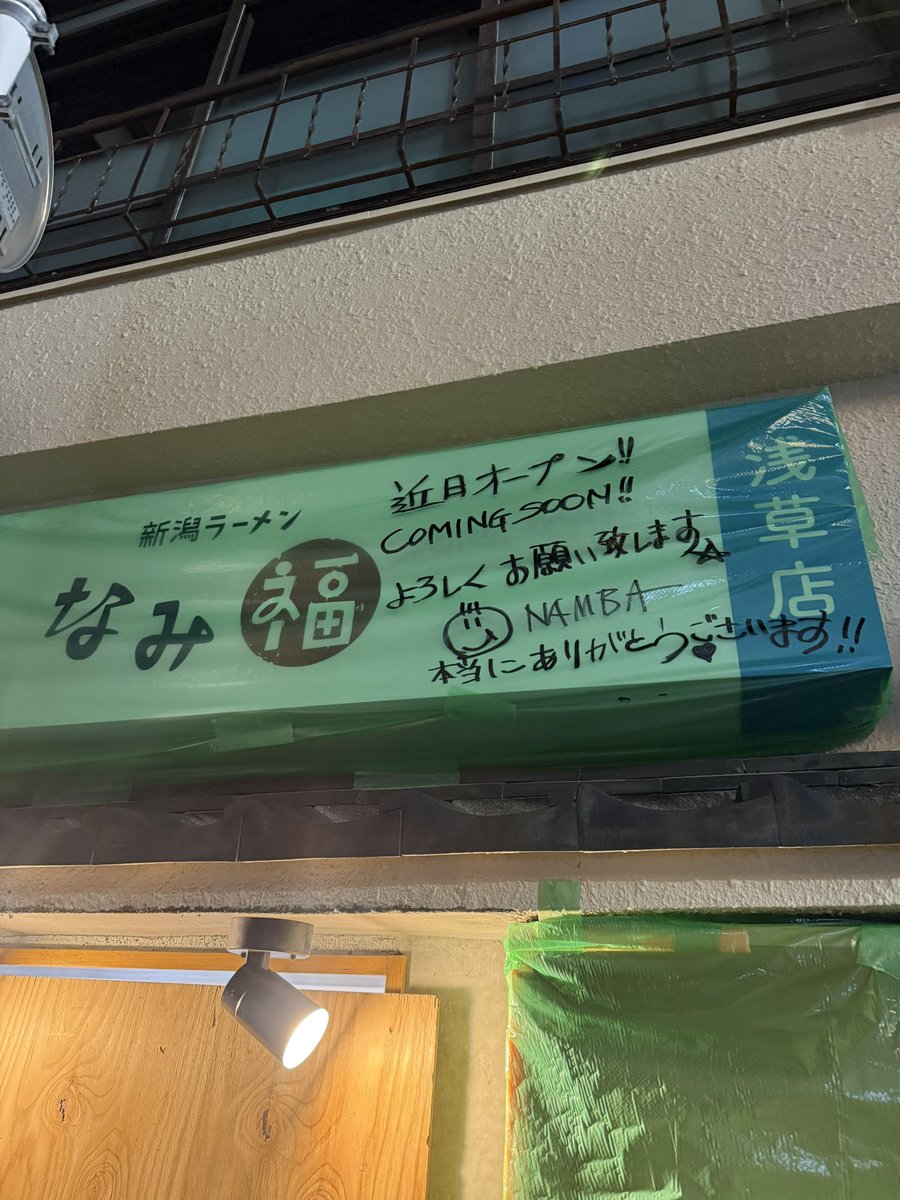 新潟ラーメン
なみ福
近日オープン!!
COMING SOON!!
よろしくお願い致します☆
NAMBA
本当にありがとうございます!!
浅草店